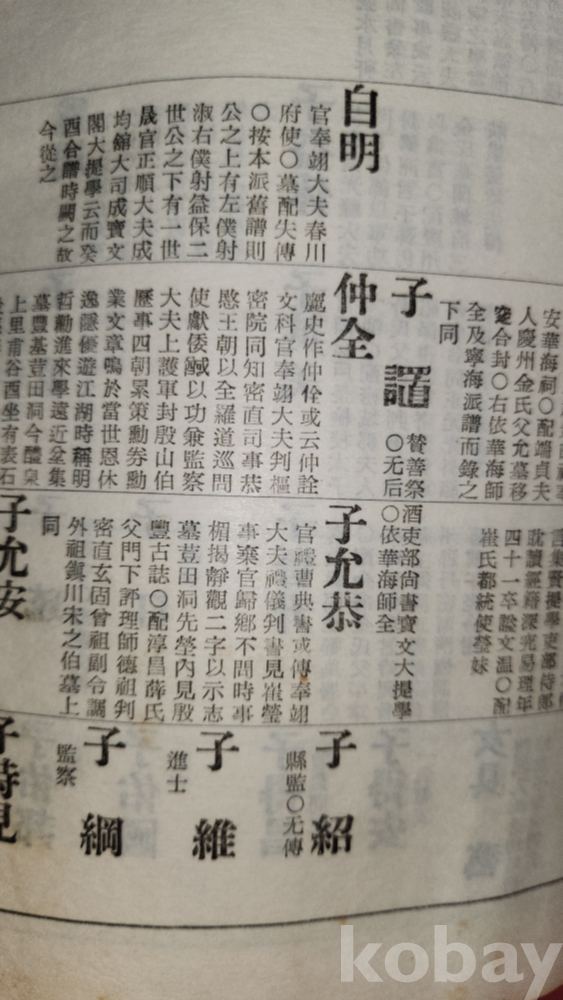 自明
官奉翊大夫春川
府使○墓配失傳
○按本派舊譜則
公之上有左僕射
淑右僕射益保二
世公之下有一世
晟官正順大夫成
均館大司成寶文
閣大提學云而癸
酉合譜時闕之故
今從之
安華海祠○配端貞夫
人慶州金氏父允墓移
窆合封○右依華海師
全及寧海派譜而錄之
下同
子
賛善祭酒吏部尙書寶文大提學
○无后○依華海師全
仲全
麗史作仲佺或云仲詮
文科官奉翊大夫判樞
密院同知密直司事恭
愍王朝以全羅道巡問
使獻倭馘以功兼監察
大夫上護軍封殷山伯
歷事四朝累策勳券勳
業文章鳴於當世恩休
逸隱優遊江湖時稱明
哲勸進來學遠近坌集
墓豐基荳田洞今醴泉
上里甫谷酉坐有表石
言集賢提學吏部侍郞
耽讀經籍深究易理年
四十一卒諡文溫○配
崔氏都統使瑩妹
子允恭
官禮曹典書或傳奉翊
大夫禮儀判書見崔瑩
事棄官歸鄕不問時事
楣揭靜觀二字以示志
墓荳田洞先塋內見殷
豐古誌○配淳昌薛氏
父門下評理師德祖判
密直玄固曾祖副令諝
外祖鎭川宋之伯墓上
同
子允安
子 紹
縣監○无傳
子 維
進士
子 綱
監察
子時見
kobay